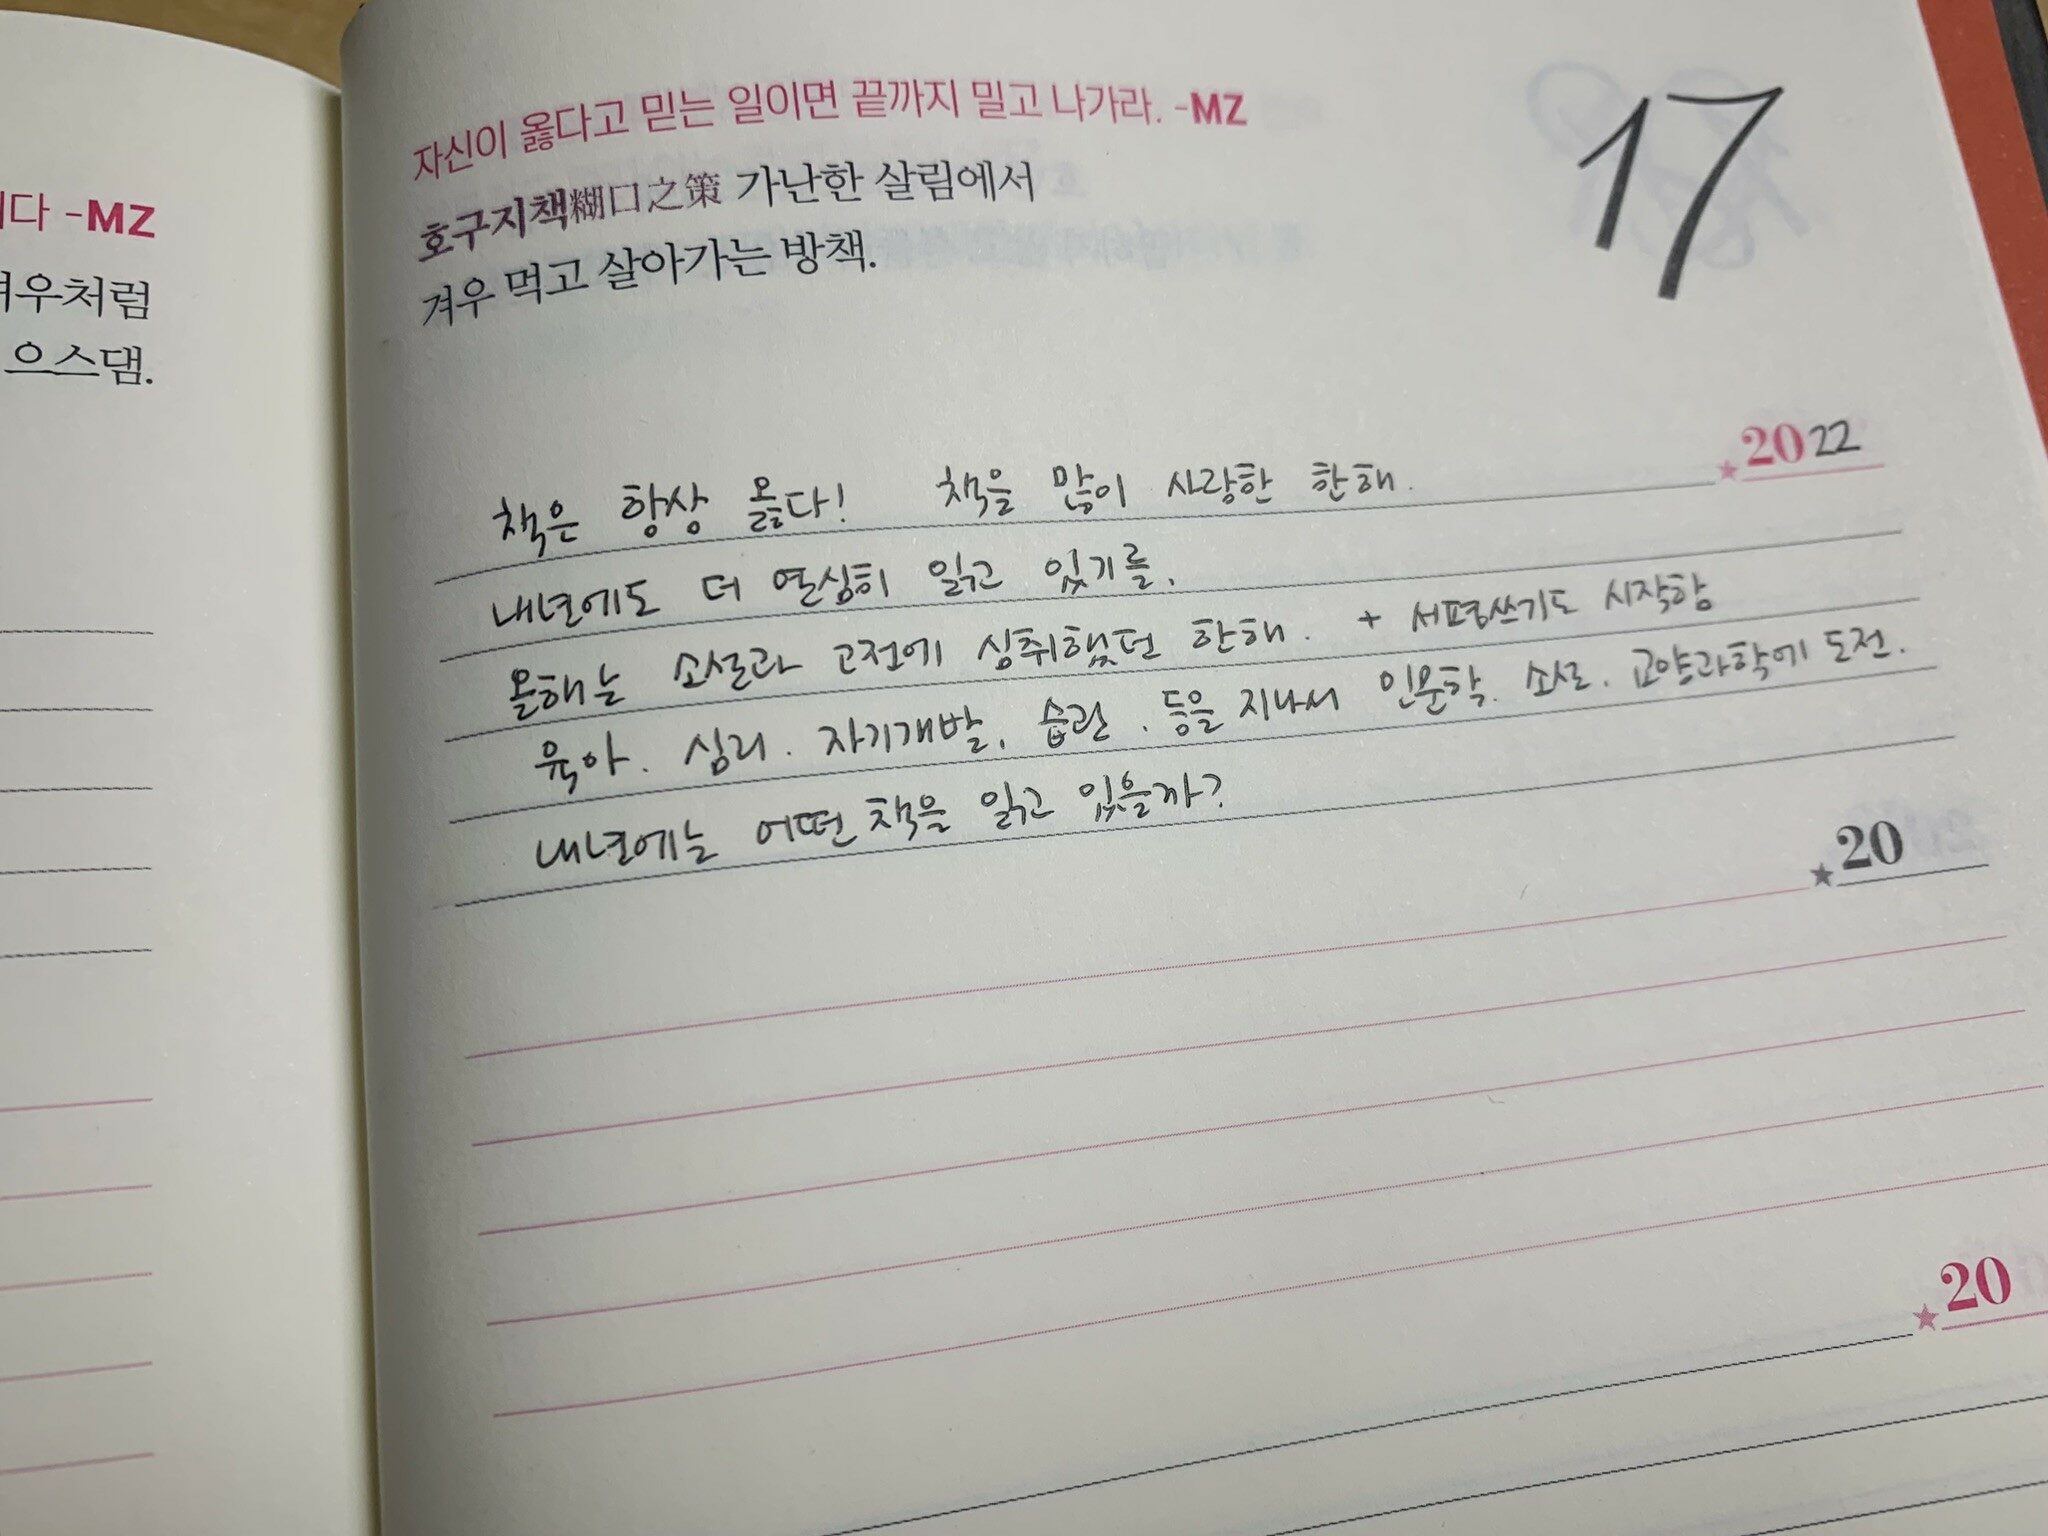 자신이 옳다고 믿는 일이면 끝까지 밀고 나가라. -MZ
호구지책糊口之策 가난한 살림에서
겨우 먹고 살아가는 방책.
17
2022
책은 항상 옳다! 책을 많이 사랑한 한해.
내년에도 더 열심히 읽고 있기를.
올해는 소설과 고전에 심취했던 한해. + 서평쓰기도 시작함
육아. 심리. 자기개발. 습관. 등을 지나서 인문학. 소설. 교양과학에 도전.
내년에는 어떤 책을 읽고 있을까?
20
20
다 -MZ
우처럼
으스댐.